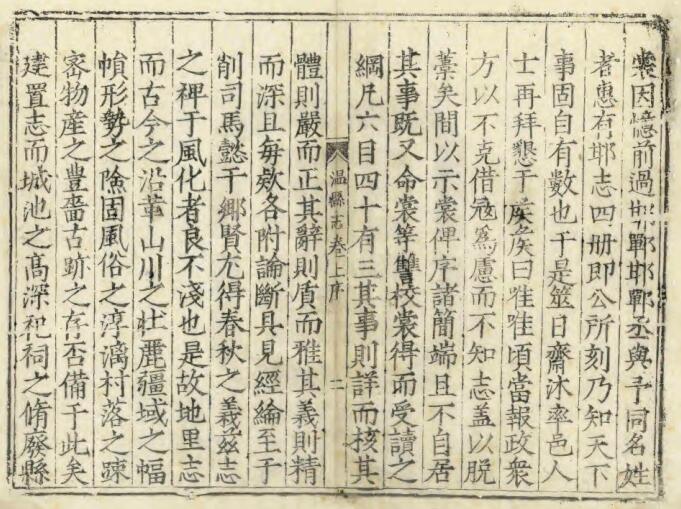 裳因憶前過邯鄲邯鄲丞與予同名姓
者惠有邯志四册即公所刻乃知天下
事固自有數也于是筮日齋沐率邑人
士再拜懇于侯侯曰唯唯頃當報政衆
方以不克借冦爲慮而不知志盖以脱
藁矣間以示裳俾序諸簡端且不自居
其事既又命裳等讐校裳得而受讀之
綱凡六目四十有三其事則詳而核其
温縣志卷上序 二
體則嚴而正其辭則質而雅其義則精
而深且毎欵各附論斷具見經綸至于
削司馬懿于鄉賢尤得春秋之義兹志
之裨于風化者良不淺也是故地里志
而古今之沿革山川之壮麗疆域之幅
幀形勢之險固風俗之淳漓村落之踈
宻物産之豊嗇古跡之存否備于此矣
建置志而城池之髙深祀祠之脩廢縣